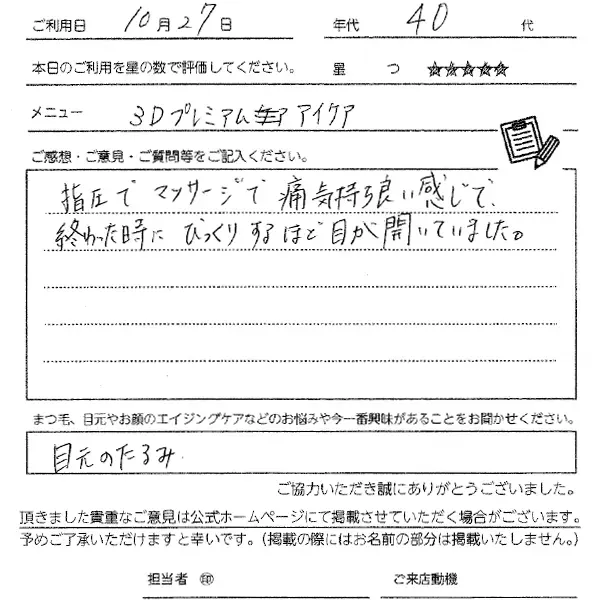 ご利用日 10月27日 年代 40 代
本日のご利用を星の数で評価してください。 星 つ ☆☆☆☆☆
メニュー 3Dプレミアム アイケア
ご感想・ご意見・ご質問等をご記入ください。
指圧で マッサージで 痛気持ち良い感じで、
終わった時に びっくりするほど目が開いていました。
まつ毛、目元やお顔のエイジングケアなどのお悩みや今一番興味があることをお聞かせください。
目元のたるみ
ご協力いただき誠にありがとうございました。
頂きました貴重なご意見は公式ホームページにて掲載させていただく場合がございます。
予めご了承いただけますと幸いです。（掲載の際にはお名前の部分は掲載いたしません。）
担当者 ㊞ ご来店動機